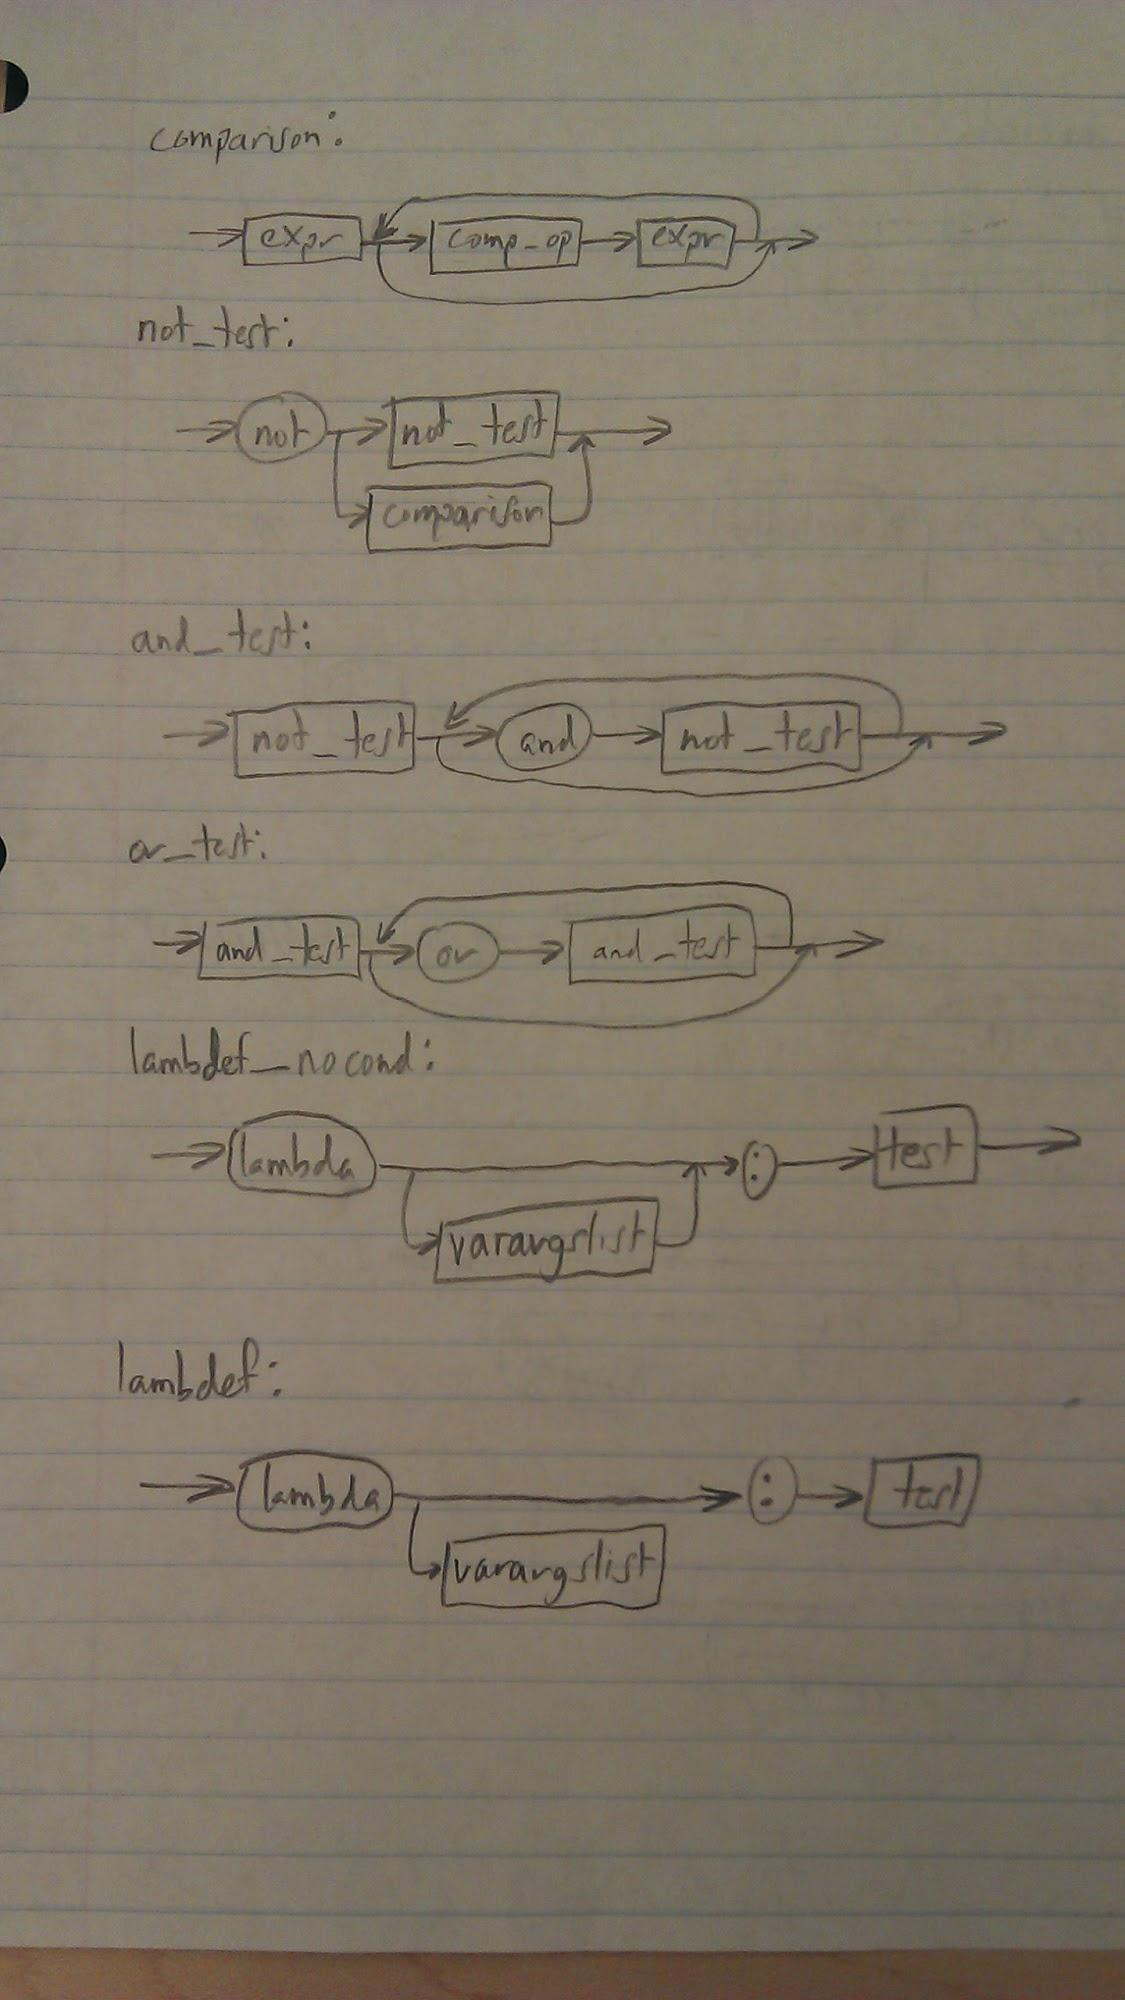 comparison:
expr comp_op expr
not_test:
not not_test
comparison
and_test:
not_test and not_test
or_test:
and_test or and_test
lambdef_nocond:
lambda : test
varargslist
lambdef:
lambda : test
varargslist